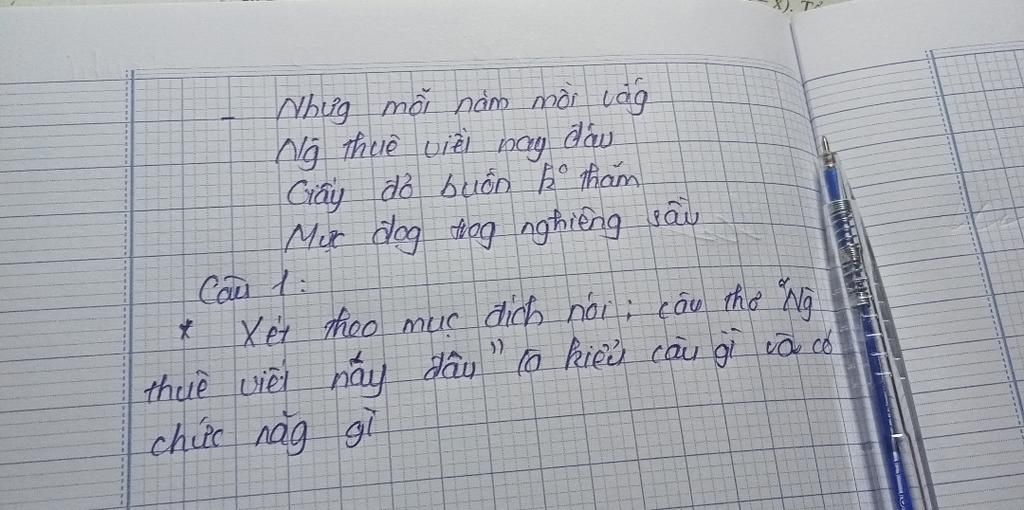 - Nhưg mỗi năm mỗi vắg
Ng̃ thuê viết nay đâu
Giấy đỏ buồn k° thắm
Mực đọg trog nghiêng sầu
Câu 1:
* Xét theo mục đích nói; câu thơ "Ng̃
thuê viết nãy đâu" là kiểu câu gì và có
chức năg gì